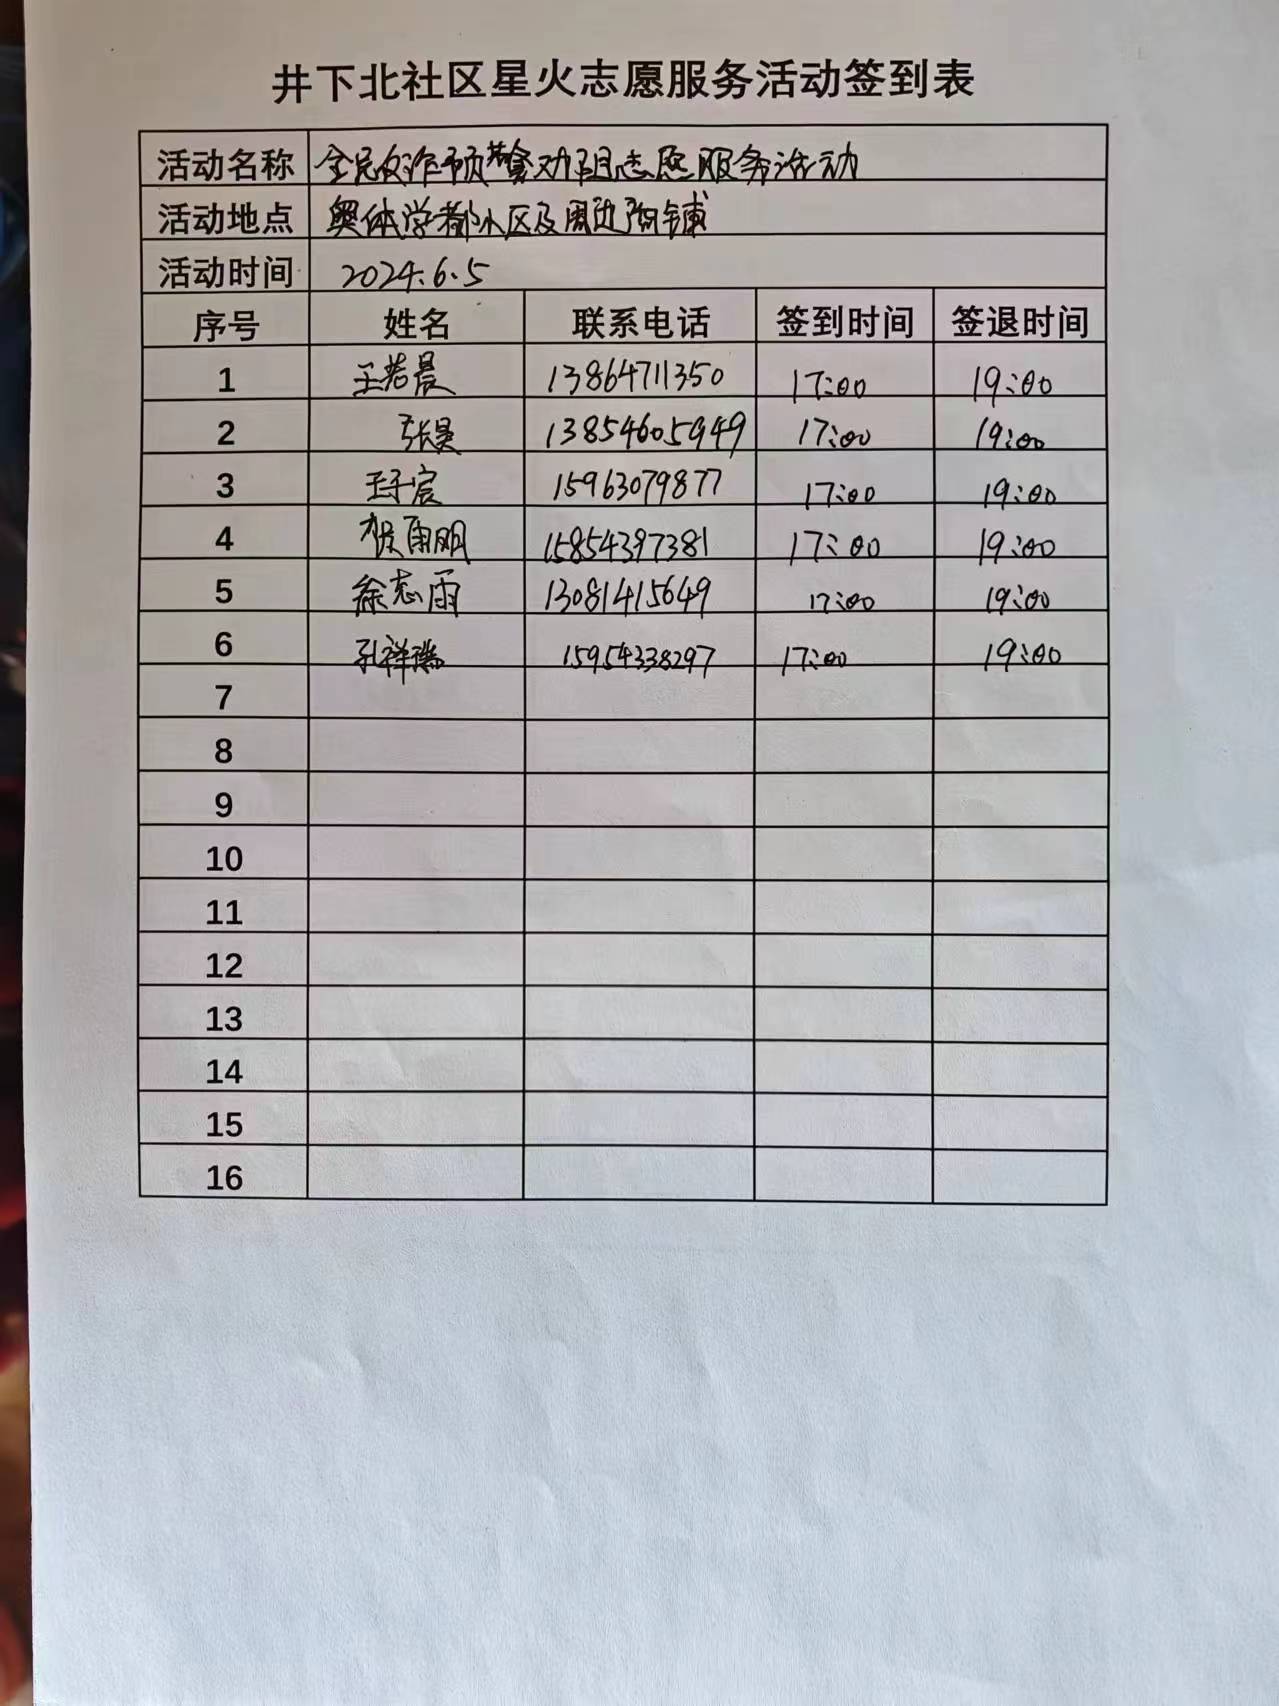 井下北社区星火志愿服务活动签到表
活动名称 全民反诈预警劝阻志愿服务活动
活动地点 奥体学都小区及周边商铺
活动时间 2024.6.5
序号 姓名 联系电话 签到时间 签退时间
1 王若晨 13864711350 17:00 19:00
2 张昊 13854605949 17:00 19:00
3 王子宸 15963079877 17:00 19:00
4 15854397381 17:00 19:00
5 徐志雨 13081415649 17:00 19:00
6 孔祥瑞 15954338297 17:00 19:00
7
8
9
10
11
12
13
14
15
16